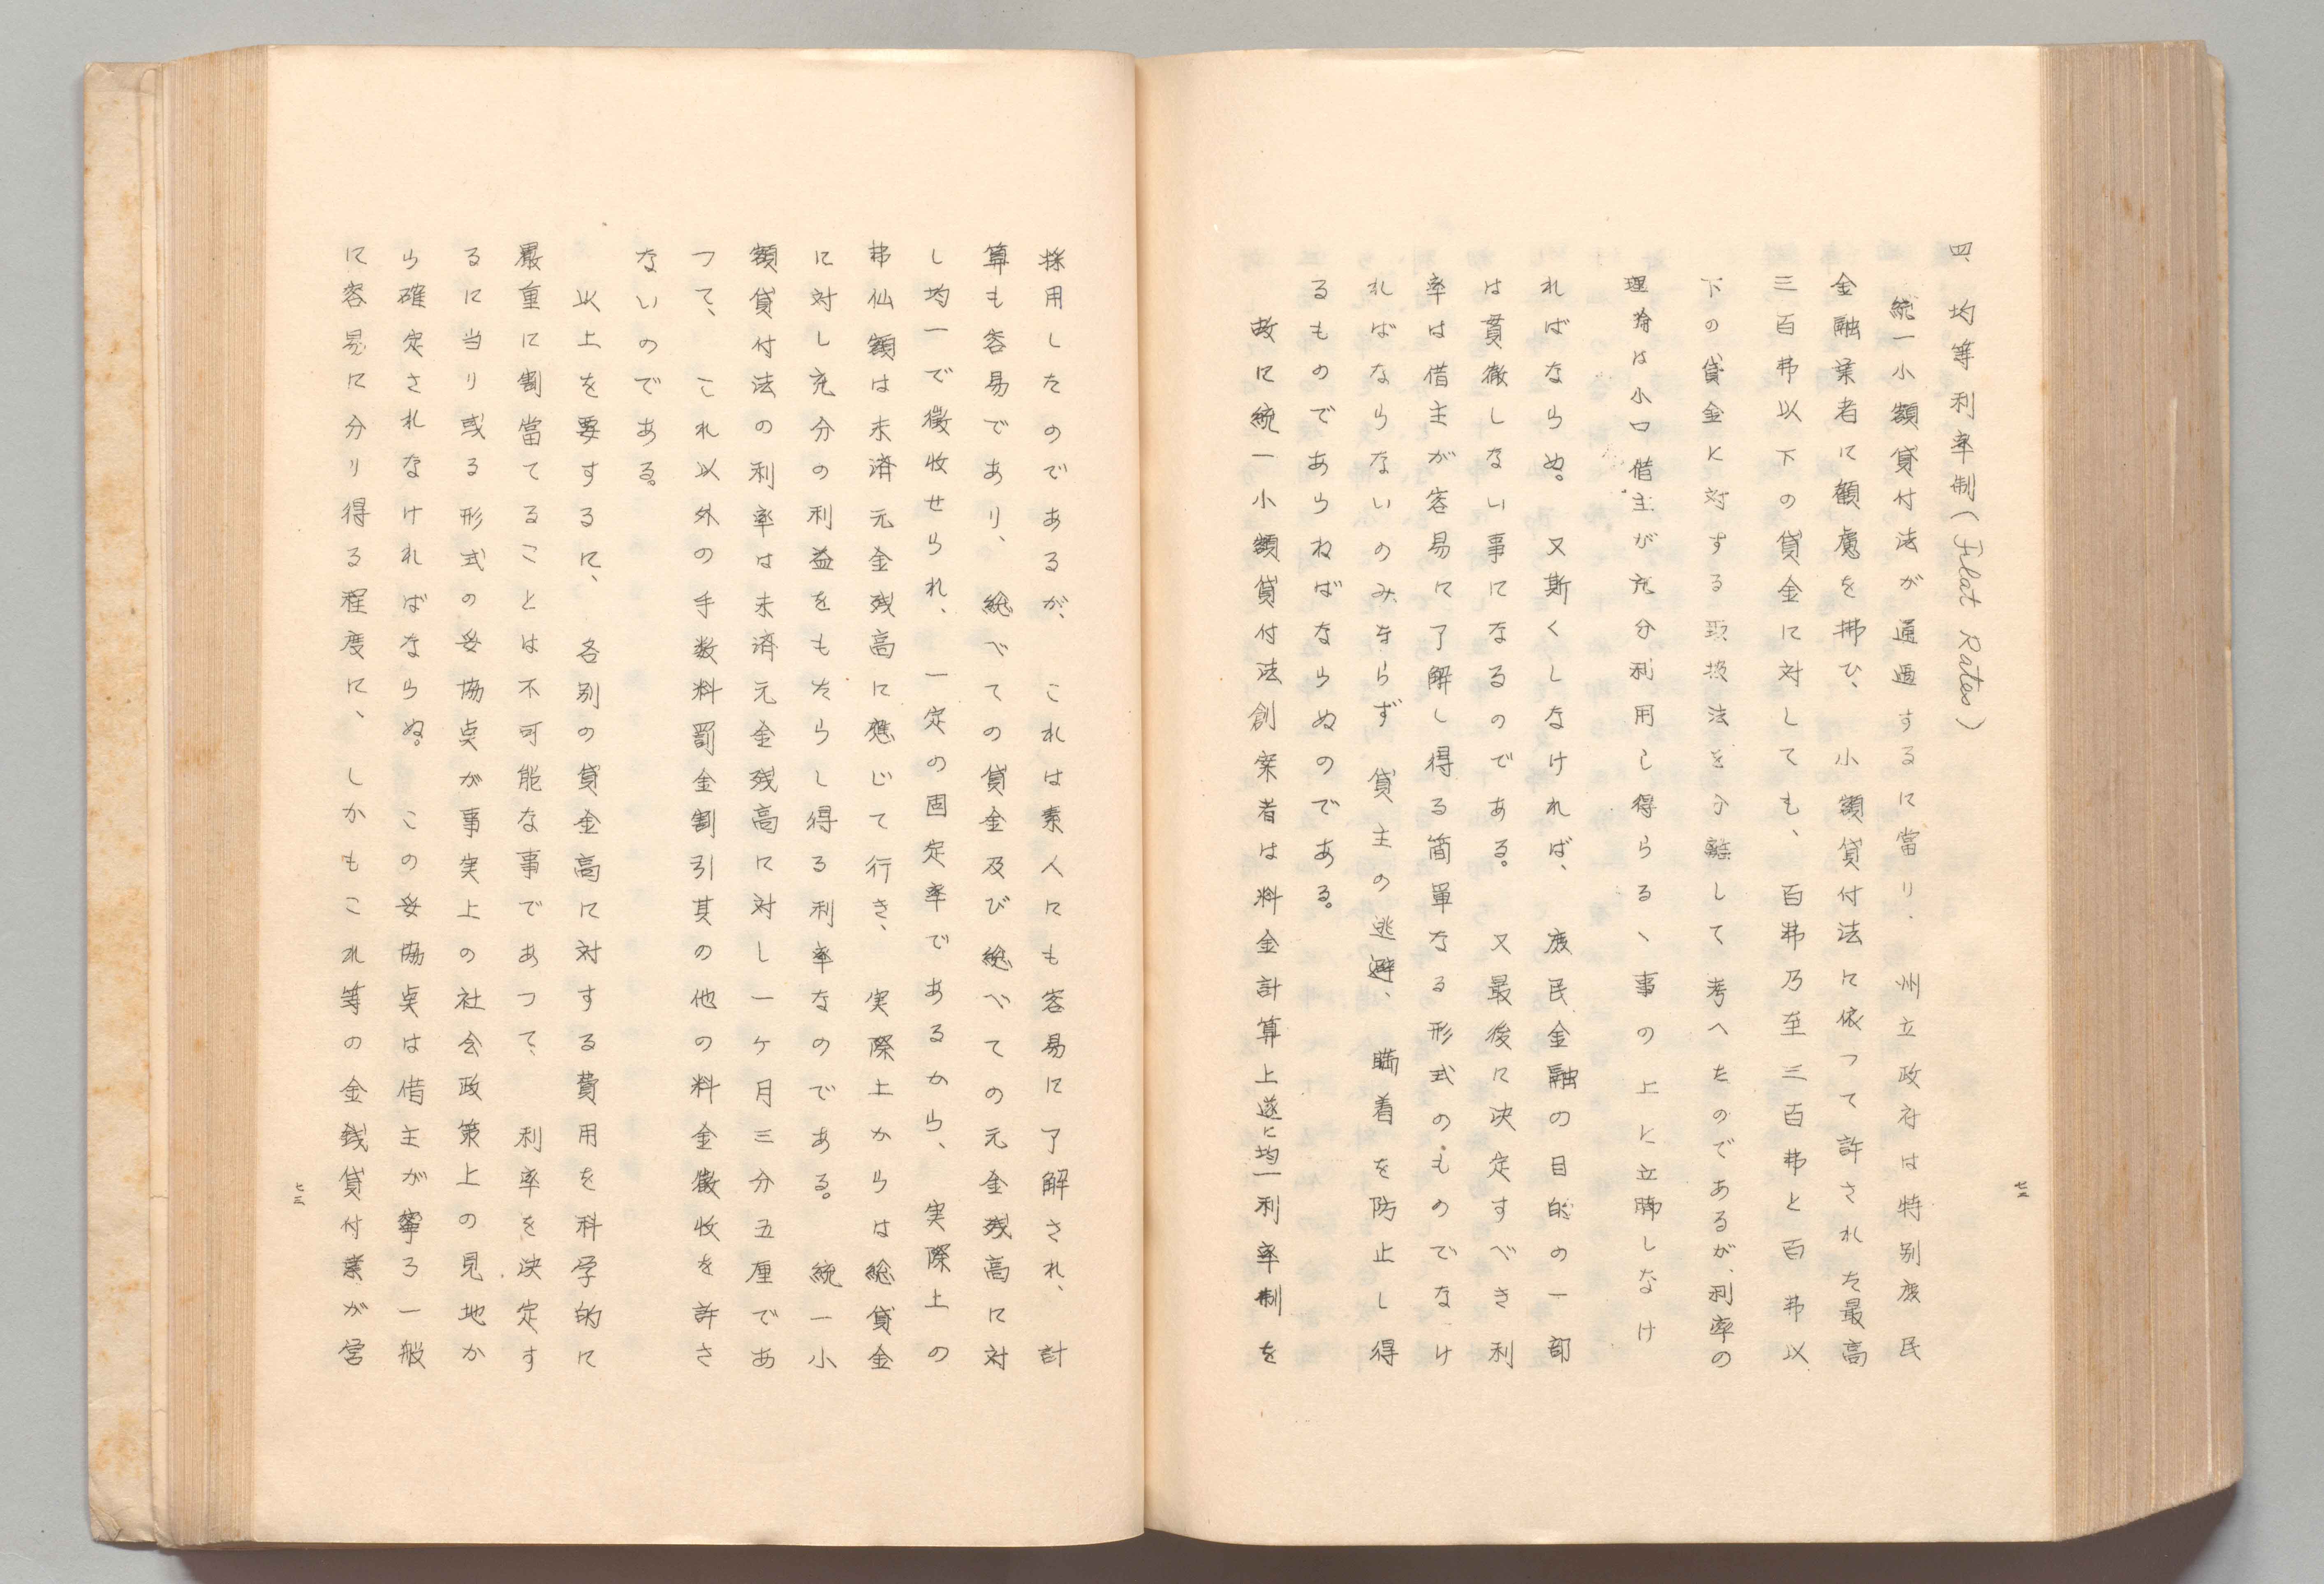 四、均等利率制(Flat Rates)
統一小額貸付法が通過するに當り、州立政府は特別庶民
金融業者に顧慮を拂ひ、小額貸付法に依つて許された最高
三百弗以下の貸金に対しても、百弗乃至三百弗と百弗以
下の貸金に対する取扱法を分離して考へたのであるが、利率の
理論は小口借主が充分利用し得らるゝ事の上に立脚しなけ
ればならぬ。又斯くしなければ、庶民金融の目的の一部
は貫徹しない事になるのである。又最後に決定すべき利
率は借主が容易に了解し得る簡單なる形式のものでなけ
ればならないのみならず貸主の逃避、瞞着を防止し得
るものであらねばならぬのである。
故に統一小額貸付法創案者は料金計算上遂に均一利率制を
七二
採用したのであるが、これは素人にも容易に了解され、計
算も容易であり、総べての貸金及び総べての元金残高に対
し均一で徴收せられ、一定の固定率であるから、実際上の
弗仙額は未済元金残高に應じて行き、実際上からは総貸金
に対し充分の利益をもたらし得る利率なのである。統一小
額貸付法の利率は未済元金残高に対し一ヶ月三分五厘であ
つて、これ以外の手数料罰金割引其の他の料金徴收を許さ
ないのである。
以上を要するに、各別の貸金高に対する費用を科学的に
嚴重に割當てることは不可能な事であつて、利率を決定す
るに当り或る形式の妥協点が事実上の社会政策上の見地か
ら確定されなければならぬ。この妥協点は借主が寧ろ一般
に容易に分り得る程度に、しかもこれ等の金銭貸付業が営
七三